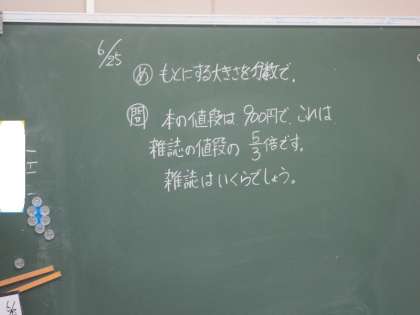 6/25
め もとにする大きさを分数で。
問 本の値段は900円で、これは
雑誌の値段の 5/3 倍です。
雑誌はいくらでしょう。